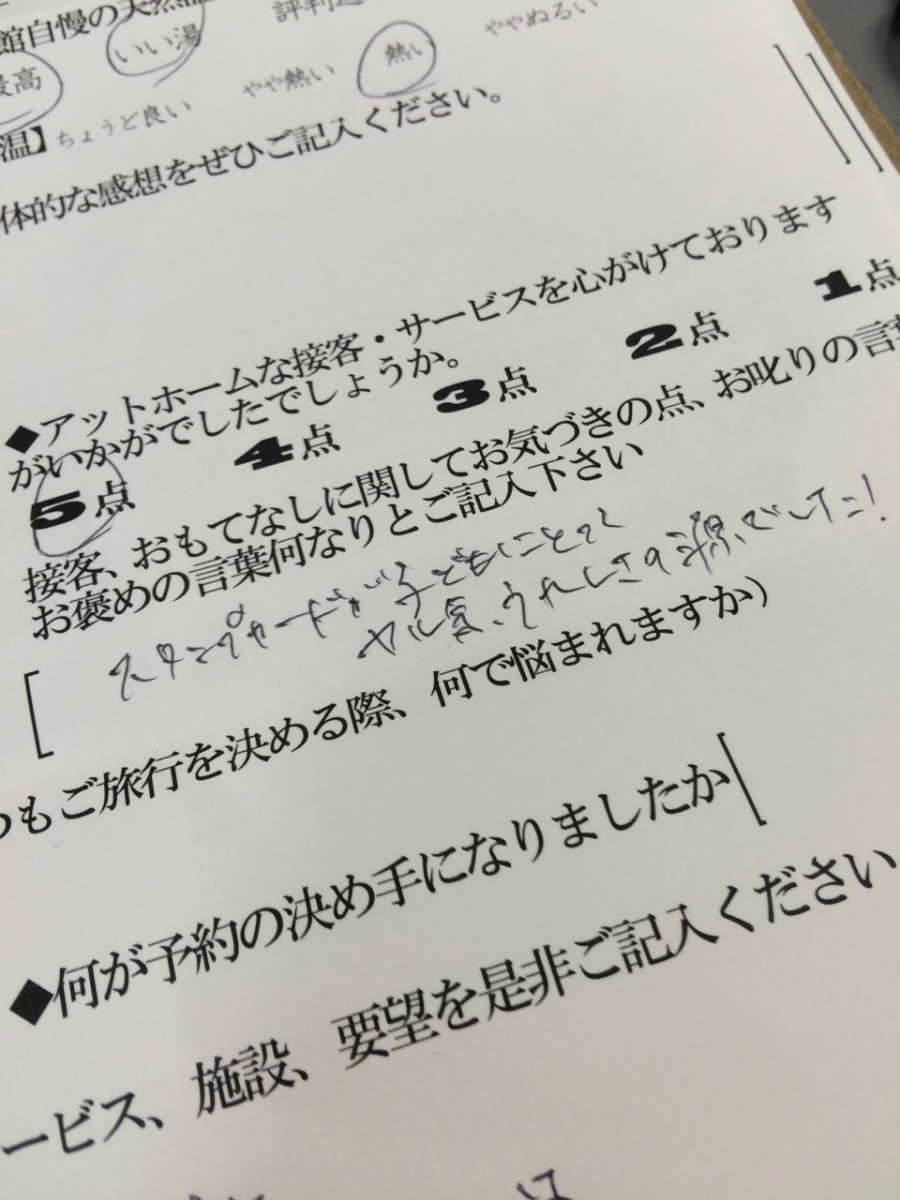 館自慢の天然温
最高 いい湯 評判通
温】ちょうど良い やや熱い 熱い ややぬるい
体的な感想をぜひご記入ください。
◆アットホームな接客・サービスを心がけております
がいかがでしたでしょうか。
5点 4点 3点 2点 1点
接客、おもてなしに関してお気づきの点、お叱りの言葉
お褒めの言葉何なりとご記入下さい
スタンプカードが子どもにとって
ヤル気、うれしさの源、でした!
つもご旅行を決める際、何で悩まれますか)
◆何が予約の決め手になりましたか
ービス、施設、要望を是非ご記入ください